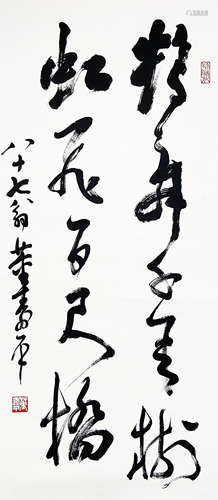 鶴舞千年樹
虹飛百尺橋
八十七翁董壽平